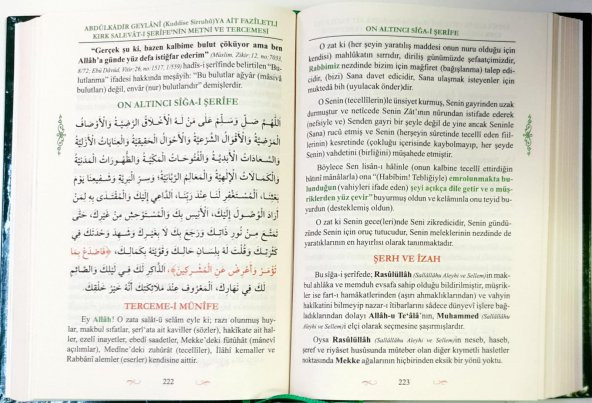 ABDÜLKÂDİR GEYLÂNÎ (Kuddise Sirruhû)'YA AİT FAZİLETLİ
KIRK SALEVÂT-I ŞERÎFE'NİN METNİ VE TERCEMESİ
"Gerçek şu ki, bazen kalbime bulut çöküyor ama ben
Allâh'a günde yüz defa istiğfar ederim" (Müslim, Zikir: 12, no: 7033,
8/72; Ebû Dâvûd, Vitr: 26, no: 1517, 1/559) hadîs-i şerîfinde belirtilen "Bu-
lutlanma" ifadesi hakkında meşâyih: "Bu bulutlar ağyâr (mâsivâ
bulutları) değil, envâr (nur) bulutlarıdır" demişlerdir.
ON ALTINCI SÎĞA-İ ŞERÎFE
اَللّٰهُمَّ صَلِّ وَسَلِّمْ عَلٰى مَنْ لَهُ الْأَخْلَاقُ الرَّضِيَّةُ وَالْأَوْصَافُ
الْمَرْضِيَّةُ وَالْأَقْوَالُ الشَّرْعِيَّةُ وَالْأَحْوَالُ الْحَقِيقِيَّةُ وَالْعِنَايَاتُ الْأَزَلِيَّةُ
وَالسَّعَادَاتُ الْأَبَدِيَّةُ وَالْفُتُوحَاتُ الْمَكِّيَّةُ وَالظُّهُورَاتُ الْمَدَنِيَّةُ
وَالْكَمَالَاتُ الْإِلٰهِيَّةُ وَالْمَعَالِمُ الرَّبَّانِيَّةُ وَسِرُّ الْبَرِيَّةِ وَشَفِيعُنَا يَوْمَ
بَعْثِنَا، اَلْمُسْتَغْفِرُ لَنَا عِنْدَ رَبِّنَا، الدَّاعِي إِلَيْكَ وَالْمُقْتَدٰى بِهِ لِمَنْ
أَرَادَ الْوُصُولَ إِلَيْكَ، اَلْأَنِيسُ بِكَ وَالْمُسْتَوْحِشُ مِنْ غَيْرِكَ، حَتّٰى
تَمَتَّعَ مِنْ نُورِ ذَاتِكَ وَرَجَعَ بِكَ لَا بِغَيْرِكَ وَشَهِدَ وَحْدَتَكَ فِي
كَثْرَتِكَ وَقُلْتَ لَهُ بِلِسَانِ حَالِكَ وَقَوَّيْتَهُ بِكَمَالِكَ: ﴿فَاصْدَعْ بِمَا
تُؤْمَرُ وَأَعْرِضْ عَنِ الْمُشْرِكِينَ﴾، اَلذَّاكِرُ لَكَ فِي لَيْلِكَ وَالصَّائِمُ
لَكَ فِي نَهَارِكَ، اَلْمَعْرُوفُ عِنْدَ مَلَائِكَتِكَ أَنَّهُ خَيْرُ خَلْقِكَ
TERCEME-İ MÜNÎFE
Ey Allâh! O zata salât-ü selâm eyle ki; razı olunmuş huy-
lar, makbul sıfatlar, şer'î kaviller (sözler), hakîkate ait hal-
ler, ezelî inayetler, ebedî saadetler, Mekke'deki fütûhât (mânevî
açılımlar), Medîne'deki zuhûrât (tecelliler), İlâhî kemaller ve
Rabbânî alemler (eserler) kendisine aittir.
222
ON ALTINCI SÎĞA-İ ŞERÎFE
O zat ki (her şeyin yaratılış maddesi onun nuru olduğu için
kendisi) mahlûkatın sırrıdır, diriliş günümüzde şefaatçimizdir,
Rabbimiz nezdinde bizim için mağfiret (bağışlanma) talep edi-
cidir, (bizi) Sana davet edicidir, Sana ulaşmak isteyenler için
muktedâ bih (uyulacak önder)dir.
O Senin (tecellîlerin)le ünsiyet kurmuş, Senin gayrinden uzak
durmuştur ve neticede Senin Zât'ının nûrundan istifade ederek
(nefsiyle ve) Senden gayri bir şeyle değil de yine ancak Seninle
(Sana) rucû etmiş ve Senin (herşeyin sûretinde tecelli eden fiil-
lerinin) kesretinde (çokluğu içerisinde kaybolmayıp, her şeyde
Senin) vahdetini (birliğini) müşahede etmiştir.
Böylece Sen lisân-ı hâlinle (onun kalbine tecelli ettirdiğin
bâtınî mânâlarla) ona "(Habîbim! Tebliğiyle) emrolunmakta bu-
lunduğun (vahiyleri ifade eden) şeyi açıkça dile getir ve o müş-
riklerden yüz çevir" buyurmuş oldun ve kelâmınla onu teyid bu-
yurdun (desteklemiş oldun).
O zat ki Senin gece(leri)nde Seni zikredicidir, Senin gündü-
zünde Senin için oruç tutucudur, Senin meleklerinin nezdinde de
yaratıklarının en hayırlısı olarak tanınmaktadır.
ŞERH VE İZAH
Bu sîğa-i şerîfede; Rasûlüllâh (Sallâllâhu Aleyhi ve Sellem)in mak-
bul ahlâka ve memduh evsafa sahip olduğu bildirilmiştir, müşrik-
ler ise fart-ı hamâkatlarından (aşırı ahmaklıklarından) ve vahyin
hakîkatini bilmeyip nazar-ı îtibarlarını sâdece dünyevî işlere bağ-
ladıklarından dolayı Allâh-u Te'âlâ'nın, Muhammed (Sallâllâhu
Aleyhi ve Sellem)i elçi olarak seçmesine şaşırmışlardır.
Oysa Rasûlüllâh (Sallâllâhu Aleyhi ve Sellem)in neseb, haseb,
şeref ve riyâset hususunda mûteber olan diğer kıymetli hasletler
noktasında Mekke ağalarının hiçbirinden eksik bir yönü yoktu.
223